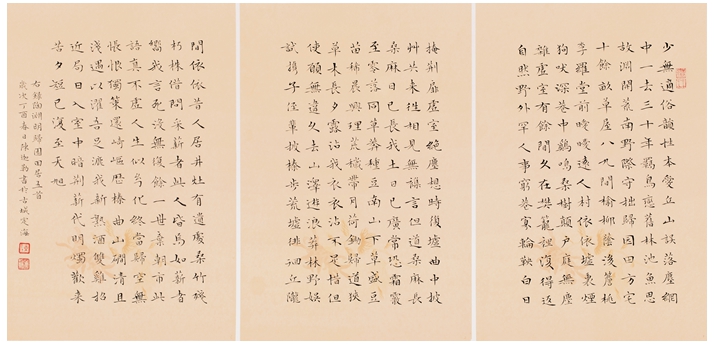 少無適俗韻性本愛丘山誤落塵網
中一去三十年羈鳥戀舊林池魚思
故淵開荒南野際守拙歸園田方宅
十餘畝草屋八九間榆柳蔭後簷桃
李羅堂前曖曖遠人村依依墟里煙
狗吠深巷中雞鳴桑樹顛戶庭無塵
雜虛室有餘閒久在樊籠裡復得返
自然野外罕人事窮巷寡輪鞅白日
掩荊扉虛室絕塵想時復墟曲中披
艸共來往相見無雜言但道桑麻長
桑麻日已長我土日已廣常恐霜霰
至零落同草莽種豆南山下草盛豆
苗稀晨興理荒穢帶月荷鋤歸道狹
草木長夕露沾我衣衣沾不足惜但
使願無違久去山澤遊浪莽林野娛
試攜子侄輩披榛步荒墟徘徊丘隴
間依依昔人居井灶有遺處桑竹殘
朽株借問采薪者此人皆焉如薪者
嚮我言死沒無復餘一世異朝市此
語真不虛人生似幻化終當歸空無
悵恨獨策還崎嶇歷榛曲山澗清且
淺遇以濯吾足漉我新熟酒雙雞招
近局日入室中暗荊薪代明燭歡來
苦夕短已復至天旭
右錄陶淵明歸園田居五首
歲次丁酉春日陳勤書於古城定海